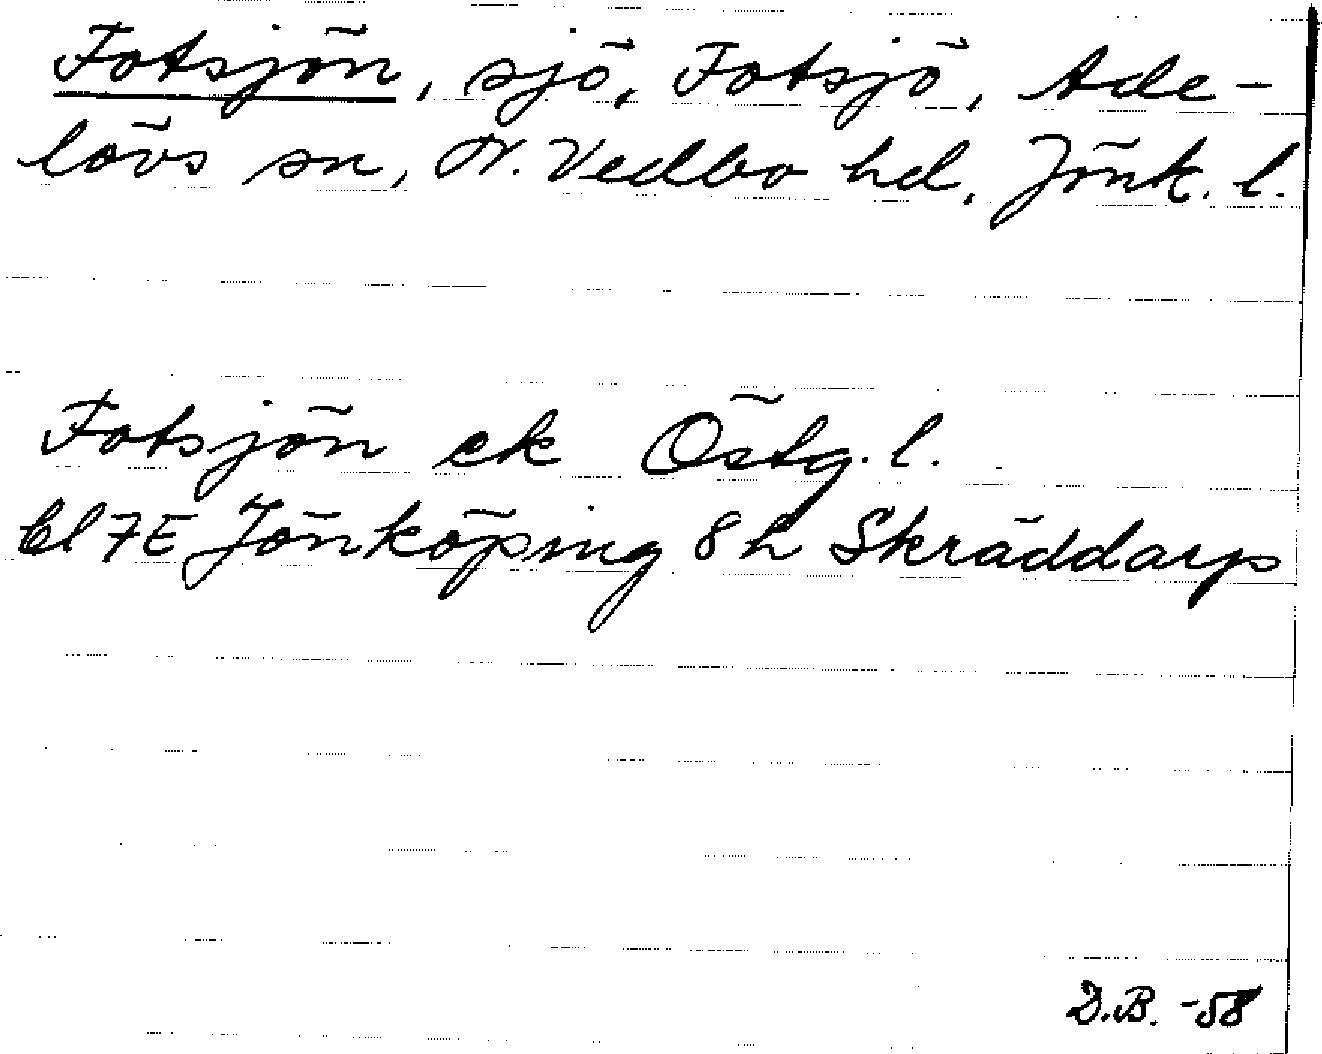 Fotsjön, sjö, Fotsjö, Ade-
lövs sn, N. Vedbo hd, Jönk. l.
Fotsjön ek Östg. l.
bl 7E Jönköping 8h Skräddarp
D.B. -58